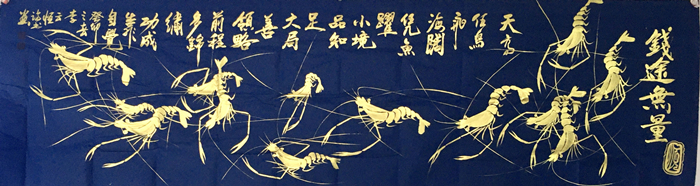 錢途無量
天高
任鳥
飛
海闊
凭魚
躍
小境
品知
足
大局
善
領略
前程
多錦
繡
功成
自覺
癸卯